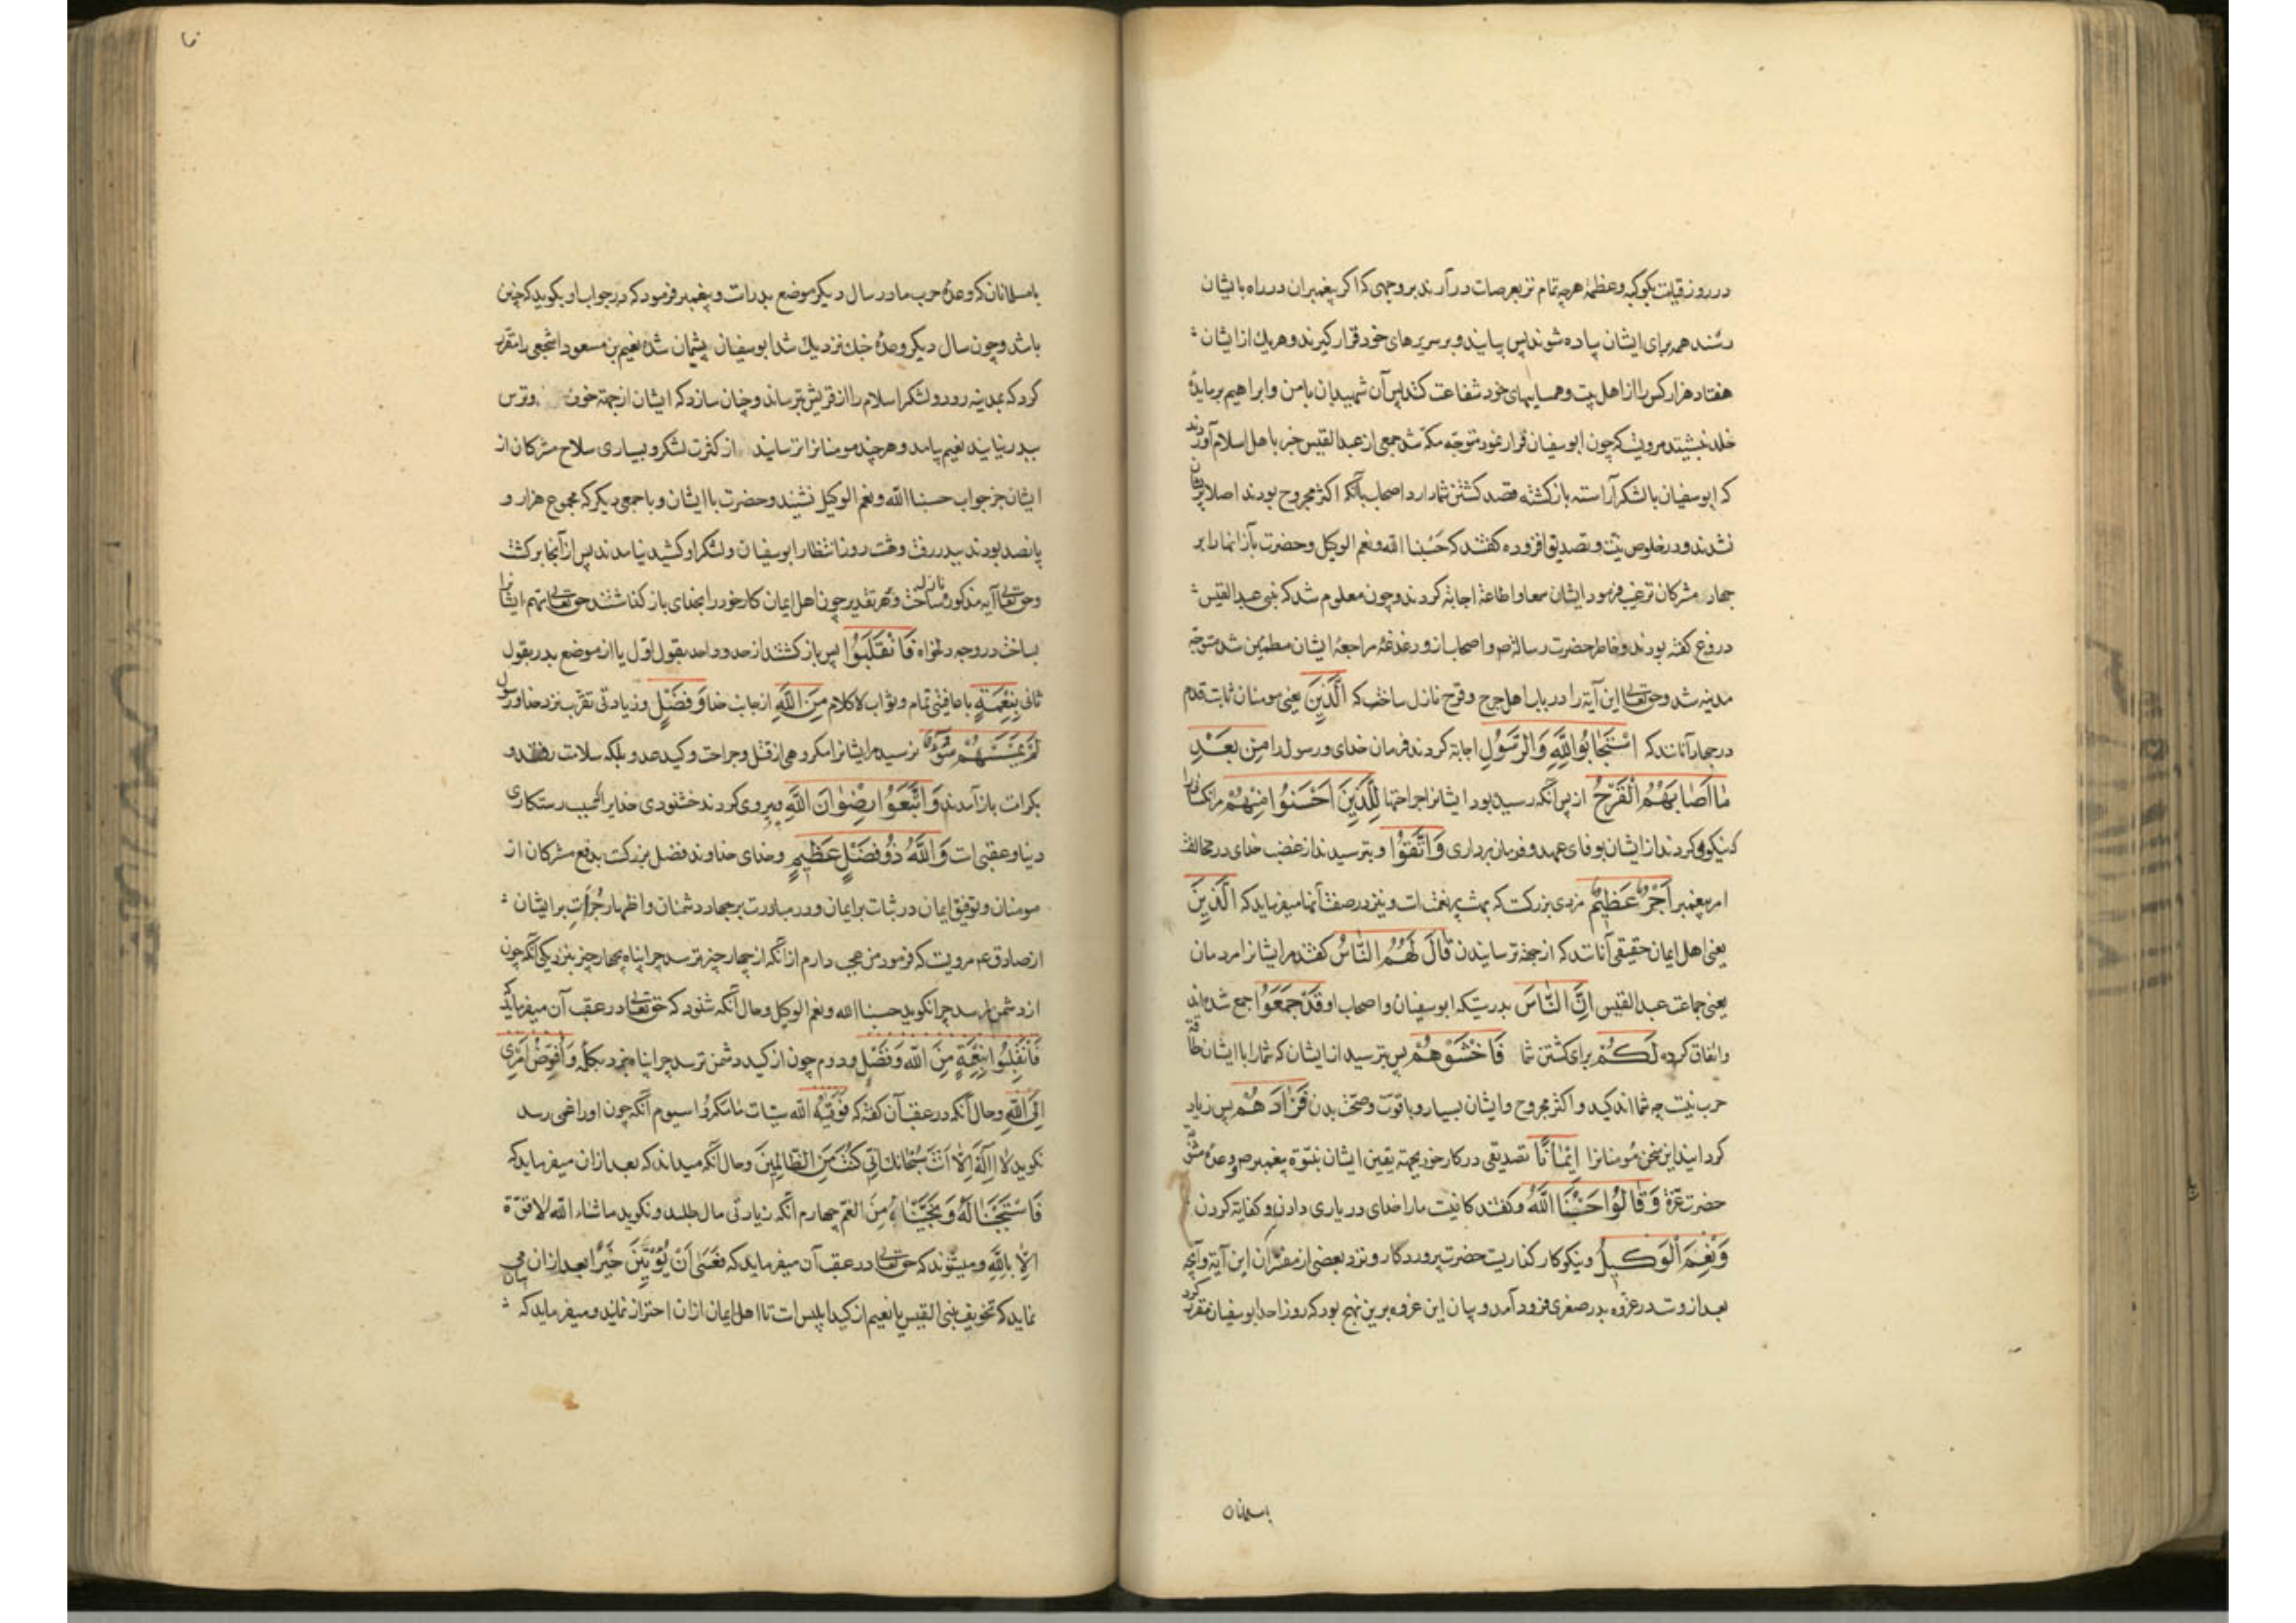 در روز قیامت بکوکبه و عظمة هرچه تمام تر بعرصات در آرند بر وجهی که اکر پیغمبران در راه با ایشان
رسند همه برای ایشان پیاده شوند پس بیایند و بر سریرهای خود قرار کیرند و هریك از ایشان
هفتاد هزار کس را از اهل بیت و همسایهای خود شفاعت کنند پس آن شهیدان با من و ابراهیم بر مایدهٔ
خلد نشینند مرویست که چون ابو سفیان فرار نمود متوجه مکه شد جمعی از عبد القیس خبر با هل اسلام آوردند
که ابو سفیان با لشکر آراسته باز کشته قصد کشتن شما دارد اصحاب با آنکه اکثر مجروح بودند اصلا هراسان
نشدند و در خلوص نیت و تصدیق افزوده کفتند که حسبنا الله و نعم الوکیل و حضرت باز آنها را بر
جهاد مشرکان ترغیب فرمود ایشان سمعا و اطاعة اجابة کردند و چون معلوم شد که بنی عبد القیس
دروغ کفته بودند و خاطر حضرت رسالة ص و اصحاب از دغدغهٔ مراجعهٔ ایشان مطمئن شد متوجه
مدینه شد و حق تعالی این آیة را در باب اهل جرح و قرح نازل ساخت که الَّذِینَ یعنی مومنان ثابت قدم
در جهاد آنانند که اسْتَجَابُوا لِلَّهِ وَالرَّسُولِ اجابة کردند فرمان خدای و رسول را مِن بَعْدِ
مَا أَصَابَهُمُ الْقَرْحُ از پس آنکه رسیده بود ایشانرا جراحتها لِلَّذِینَ أَحْسَنُوا مِنْهُمْ مر آنکسانرا
که نیکوئی کردند از ایشان بوفای عهد و فرمان برداری وَاتَّقَوْا و بترسیدند از غضب خدای در مخالفت
امر پیغمبر أَجْرٌ عَظِیمٌ مزدی بزرکست که بهشت پر نعمتست و نیز در صفت آنها میفرماید که الَّذِینَ
یعنی اهل ایمان حقیقی آنانند که از جهة ترسانیدن قَالَ لَهُمُ النَّاسُ کفتند مر ایشانرا مردمان
یعنی جماعت عبد القیس إِنَّ النَّاسَ بدرستیکه ابو سفیان و اصحاب او قَدْ جَمَعُوا جمع شده اند
و اتفاق کرده لَكُمْ برای کشتن شما فَاخْشَوْهُمْ پس بترسید از ایشان که شما را با ایشان طاقة
حرب نیست چه شما اندکید و اکثر مجروح و ایشان بسیار و با قوت و صحت بدن فَزَادَهُمْ پس زیاد
کردانید این سخن مؤمنانرا إِیمَانًا تصدیقی در کار خود بجهة یقین ایشان بنبوة پیغمبر ص و وعدهٔ
حضرت عزة وَقَالُوا حَسْبُنَا اللَّهُ و کفتند کافیست ما را خدای در یاری دادن و کفایة کردن
وَنِعْمَ الْوَكِیلُ و نیکو کار کذاریست حضرت پروردکار و نزد بعضی از مفسران این آیة و آیهٔ
بعد ازوست در غزوه بدر صغری فرود آمد و بیان این غزوه برین نهج بود که روز احد ابو سفیان مقرر کرد
با مسلمانان
با مسلمانان که وعدهٔ حرب ما در سال دیکر موضع بدرست و پیغمبر فرمود که در جواب او بکویید که چنین
باشد و چون سال دیکر وعدهٔ جنك نزدیك شد ابو سفیان پشیمان شده نعیم بن مسعود اشجعی را مقرر
کرد که بمدینه رود و لشکر اسلام را از قریش بترساند و چنان سازد که ایشان از جهة خوف و ترس
ببدر نیایند نعیم بیامد و هرچند مومنانرا ترسانید از کثرت لشکر و بسیاری سلاح مشرکان از
ایشان جز جواب حسبنا الله و نعم الوکیل نشنید و حضرت با ایشان و با جمعی دیکر که مجموع هزار و
پانصد بودند ببدر رفت و هشت روز انتظار ابو سفیان و لشکر او کشید نیامدند پس از آنجا برکشت
و حق تعالی آیه مذکوره نازل ساخت و بهر تقدیر چون اهل ایمان کار خود را بخدای باز کذاشتند حق تعالی مهم ایشانرا
بساخت در وجه دلخواه فَانْقَلَبُوا پس باز کشتند از حدود احد بقول اول یا از موضع بدر بقول
ثانی بِنِعْمَةٍ با عافیتی تمام و ثواب لا کلام مِنَ اللَّهِ از جانب خدا وَفَضْلٍ و زیادتی تقرب نزد خدا و رسول
لَمْ یَمْسَسْهُمْ سُوءٌ نرسید مر ایشانرا مکروهی از قتل و جراحت و کید عدو بلکه سلامت رفتند و
بکرامت باز آمدند وَاتَّبَعُوا رِضْوَانَ اللَّهِ و پیروی کردند خشنودی خدایرا که سبب رستکاری
دنیا و عقبی است وَاللَّهُ ذُو فَضْلٍ عَظِیمٍ و خدای خداوند فضل بزرکست بدفع مشرکان از
مومنان و توفیق ایمان در ثبات بر ایمان و در مبادرت بر جهاد دشمنان و اظهار جرأت بر ایشان
از صادق ع مرویست که فرمود من عجب دارم از آنکه از چهار چیز ترسد چرا پناه بچهار چیز نبرد یکی آنکه چون
از دشمن ترسد چرا نکوید حسبنا الله و نعم الوکیل و حال آنکه شنود که حق تعالی در عقب آن میفرماید که
فَانْقَلَبُوا بِنِعْمَةٍ مِنَ اللَّهِ وَفَضْلٍ و دوم چون از کید دشمن ترسد چرا پناه نبرد بکلمه وَأُفَوِّضُ أَمْرِی
إِلَی اللَّهِ و حال آنکه در عقب آن کفته که فَوَقَیهُ الله سیئات ما مکروا سیوم آنکه چون او را غمی رسد
نکوید لَا إِلَهَ إِلَّا أَنْتَ سُبْحَانَكَ إِنِّی كُنْتُ مِنَ الظَّالِمِینَ و حال آنکه میداند که بعد ازان میفرماید که
فَاسْتَجَبْنَا لَهُ وَنَجَّیْنَاهُ مِنَ الْغَمِّ چهارم آنکه زیادتی مال طلبد و نکوید ما شاء الله لا قوة
إِلَّا بِاللَّهِ و میشنوند که حق تعالی در عقب آن میفرماید که فَعَسَی أَنْ یُؤْتِیَنِ خَیْرًا بعد ازان بیان می
نماید که تخویف بنی القیس یا نعیم از کید ابلیس است تا اهل ایمان ازان احتراز نمایند و میفرماید که